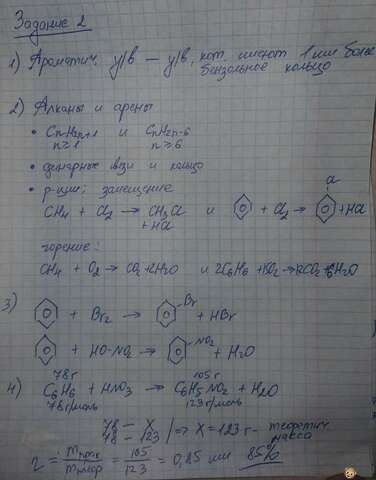 Задание 2
1) Ароматич. у/в — у/в, кот. имеют 1 или более
бензольное кольцо
2) Алканы и арены
• CnH2n+1 и CnH2n-6
n≥1 n≥6
• динарные связи и кольцо
• р-ции: замещение
Cl
CH4 + Cl2 → CH3Cl и + Cl2 → + HCl
+ HCl
горение:
CH4 + O2 → CO2 + 2H2O и 2C6H6 + O2 → 12CO2 + 6H2O
3) + Br2 → Br + HBr
+ HO-NO2 → NO2 + H2O
78 г 105 г
4) C6H6 + HNO3 → C6H5NO2 + H2O
78 г/моль 123 г/моль
78 — X
78 — 123 | => X = 123 г - теоретич.
масса
η = mпрак/mтеор = 105/123 = 0,85 или 85%